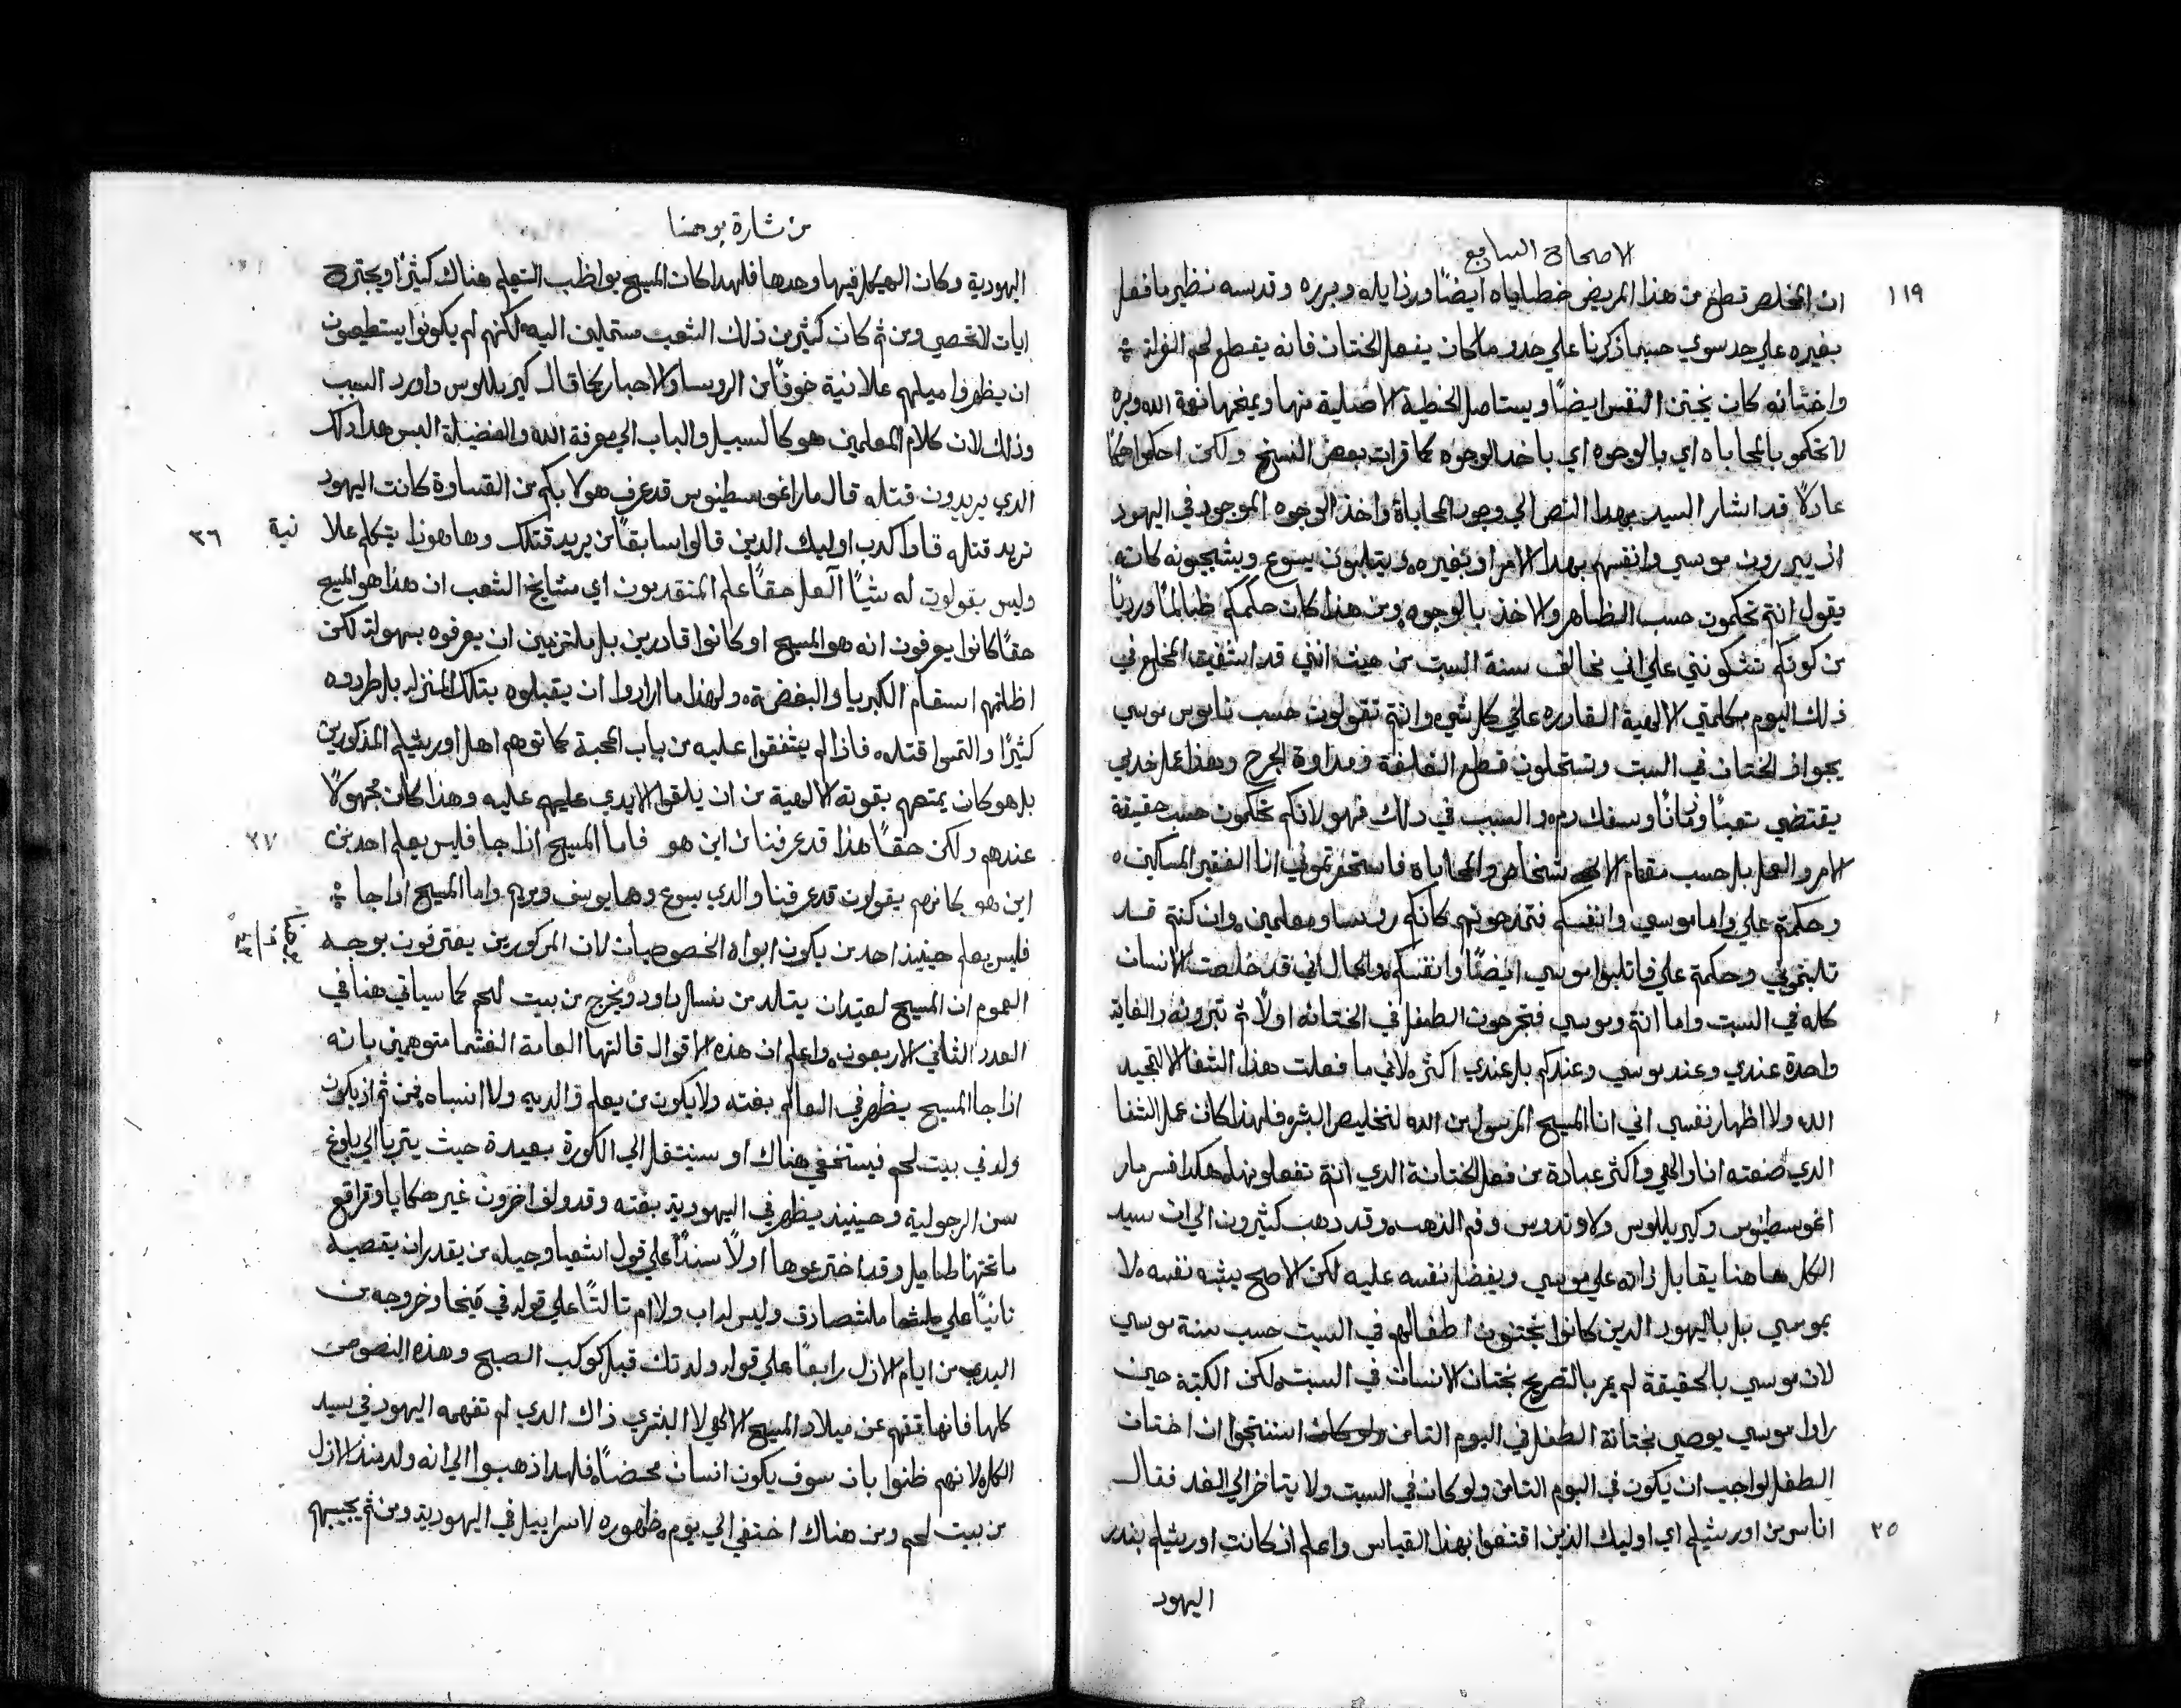 الاصحاح السابع
١١٩
ان المخلص قطع من هذا المريض خطاياه ايضًا ورذايله وبرره وقدسه نظير ما فعل
بغيره علي حد سوي حسبما ذكرنا علي حدو ما كان يفعل الختان فانه يقطع لحم الغرلة
واختانه كان يختن النفس ايضًا ويستاصل الخطية الاصلية منها ويمنحها نعمة الله وبره
لا تحكمو بالمحاباه اي بالوجوه اي باخد الوجوه كما قرات بعض النسخ ولكن احكموا حكمًا
عادلًا قد اشار السيد بهدا النص الي وجود المحاباة واخذ الوجوه الموجود في اليهود
اذ يبررون موسي وانفسهم بهدا الامر او بغيره ويتلبون يسوع ويشجبونه كانه
يقول انتم تحكمون حسب الظاهر والاخذ بالوجوه ومن هذا كان حكمكم ظالمًا ورديًا
من كونكم تشكونني علي اني نخالف سنة السبت من حيث انني قد اشفيت المخلع في
ذلك اليوم بكلمتي الالهية القادره علي كل شي وانتم تقولون حسب ناموس موسي
يجواز الختان في السبت وتستحلون قطع الغلفة ومداوة الجرح وهذا عمل خدمي
يقتضي تعبًا وزمانًا وسفك دم والسبب في دلك فهو لانكم تحكمون حسب حقيقة
الامر والعمل بل حسب مقام الاشخاص والمحاباه فاستحقرتموني انا الفقير المسكين
وحكمتم علي واما موسي وانفسكم فتمدحونهم كانكم روسا ومعلمين وان كنتم قد
تلبتموني وحكمتم علي فاتلبوا موسي ايضًا وانفسكم والحال اني قد خلصت الانسان
كله في السبت واما انتم وموسي فتجرحون الطفل في الختانه اولًا ثم تبرونه والغاية
واحدة عندي وعند موسي وعندكم بل عندي اكثر لاني ما فعلت هذا الشفا الا لتمجيد
الله ولا اظهار نفسي اني انا المسيح المرسول من الله لتخليص البشر فلهذا كان عمل الشفا
الدي صنعته انا والهي واكثر عبادة من فعل الختانة الدي انتم تفعلونها هكدا فسر مار
اغوسطينوس وكيريللوس ولاوندوس وفم الذهب وقد دهب كثيرون الي ان سيد
الكل هاهنا يقابل ذاته علي موسي ويفضل نفسه عليه لكن الاصح يشبه نفسه لا
بموسي بل باليهود الدين كانوا يختنون اطفالهم في السبت حسب سنة موسي
لان موسي بالحقيقة لم يمر بالتصريح بختان الانسان في السبت لكن الكتبة حين
راوا موسي يوصي بختانة الطفل في اليوم الثامن استنتجوا ان اختان
الطفل لواجب ان يكون في اليوم الثامن ولو كان في السبت ولا يتاخر الي الغد فقال
٢٥
اناس من اورشليم اي اوليك الذين اقتنعوا بهذا القياس واعلم اذ كانت اورشليم بندر
اليهود
من بشارة يوحنا
اليهودية وكان الهيكل فيها وحدها فلهدا كان المسيح يواظب التعليم هناك كثيرًا ويجترح
ايات لا تحصي ومن ثم كان كثير من ذلك الشعب مستميلين اليه لكنهم لم يكونوا يستطيعون
ان يظهروا ميلهم علانية خوفًا من الروسا والاحبار كما قال كيريللوس واورد السبب
وذلك لان كلام المعلمين هو كالسبيل والباب الي معرفة الله والفضيلة اليس هدا دلك
الدي يريدون قتله قال مار اغوسطينوس قد عرف هولا بكم من القساوة كانت اليهود
تريد قتله فاوا كدب اوليك الدين قالوا سابقًا من يريد قتلك وها هوذا يتكلم علا نية
٢٦
وليس يقولون له شيًا العل حقًا علم المتقدمون اي مشايخ الشعب ان هذا هو المسيح
حقًا كانوا يعرفون انه هو المسيح او كانوا قادرين بل ملتزمين ان يعرفوه بسهولة لكن
اظلتهم اسقام الكبريا والبغضة ولهذا ما ارادوا ان يقبلوه بتلك المنزلة بل طردوه
كثيرًا والتمسوا قتله فاذا لم يشفقوا عليه من باب المحبة كما توهم اهل اورشليم المذكورين
بل هو كان يمنعهم بقوته الالهية من ان يلقوا الايدي عليهم عليه وهذا كان مجهولًا
عندهم ولكن حقًا هذا قد عرفنا من اين هو فاما المسيح اذا جا فليس يعلم احد من
٢٧
اين هو كانهم يقولون قد عرفنا والدي يسوع وهما يوسف ومريم واما المسيح اذا جا
فليس يعلم حينيذ احد من يكون ابواه الخصوصيان لان المدكورين يعترفون بوجه
العموم ان المسيح لعتيد ان يتلد من نسل داود ويخرج من بيت لحم كما سياتي هنا في
العدد الثاني الاربعون واعلم ان هذه الاقوال قالتها العامة الغشما متوهمين بانه
اذا جا المسيح يظهر في العالم بغته ولا يكون من يعلم والديه ولا انسباه فمن ثم اذ يكون
ولد في بيت لحم فيستخفي هناك او سينتقل الي الكورة بعيدة حيث يتربا الي بلوغ
سن الرجولية وحينيذ يظهر في اليهودية بغته وقد ولف اخرون غير هكايا وقراقع
ما تحتها طمايل وقد اخترعوها اولًا سندًا علي قول اشعيا وجيله من يقدر ان يقصيه
ثانيًا علي ملشصادق وليس له اب ولا ام ثالثًا علي قوله في ميخا وخروجه من
البدي من ايام الازل رابعًا علي قوله ولدتك قبل كوكب الصبح وهذه النصوص
كلها فانها تفهم عن ميلاد المسيح الالهي لا البشري ذاك الدي لم تفهمه اليهود في سيد
الكل لانهم ظنوا بان سوف يكون انسان محضًا فلهدا ذهبوا الي انه ولد منذ الازل
من بيت لحم ومن هناك اختفي الي يوم ظهوره لاسراييل في اليهودية ومن ثم يجيبهم